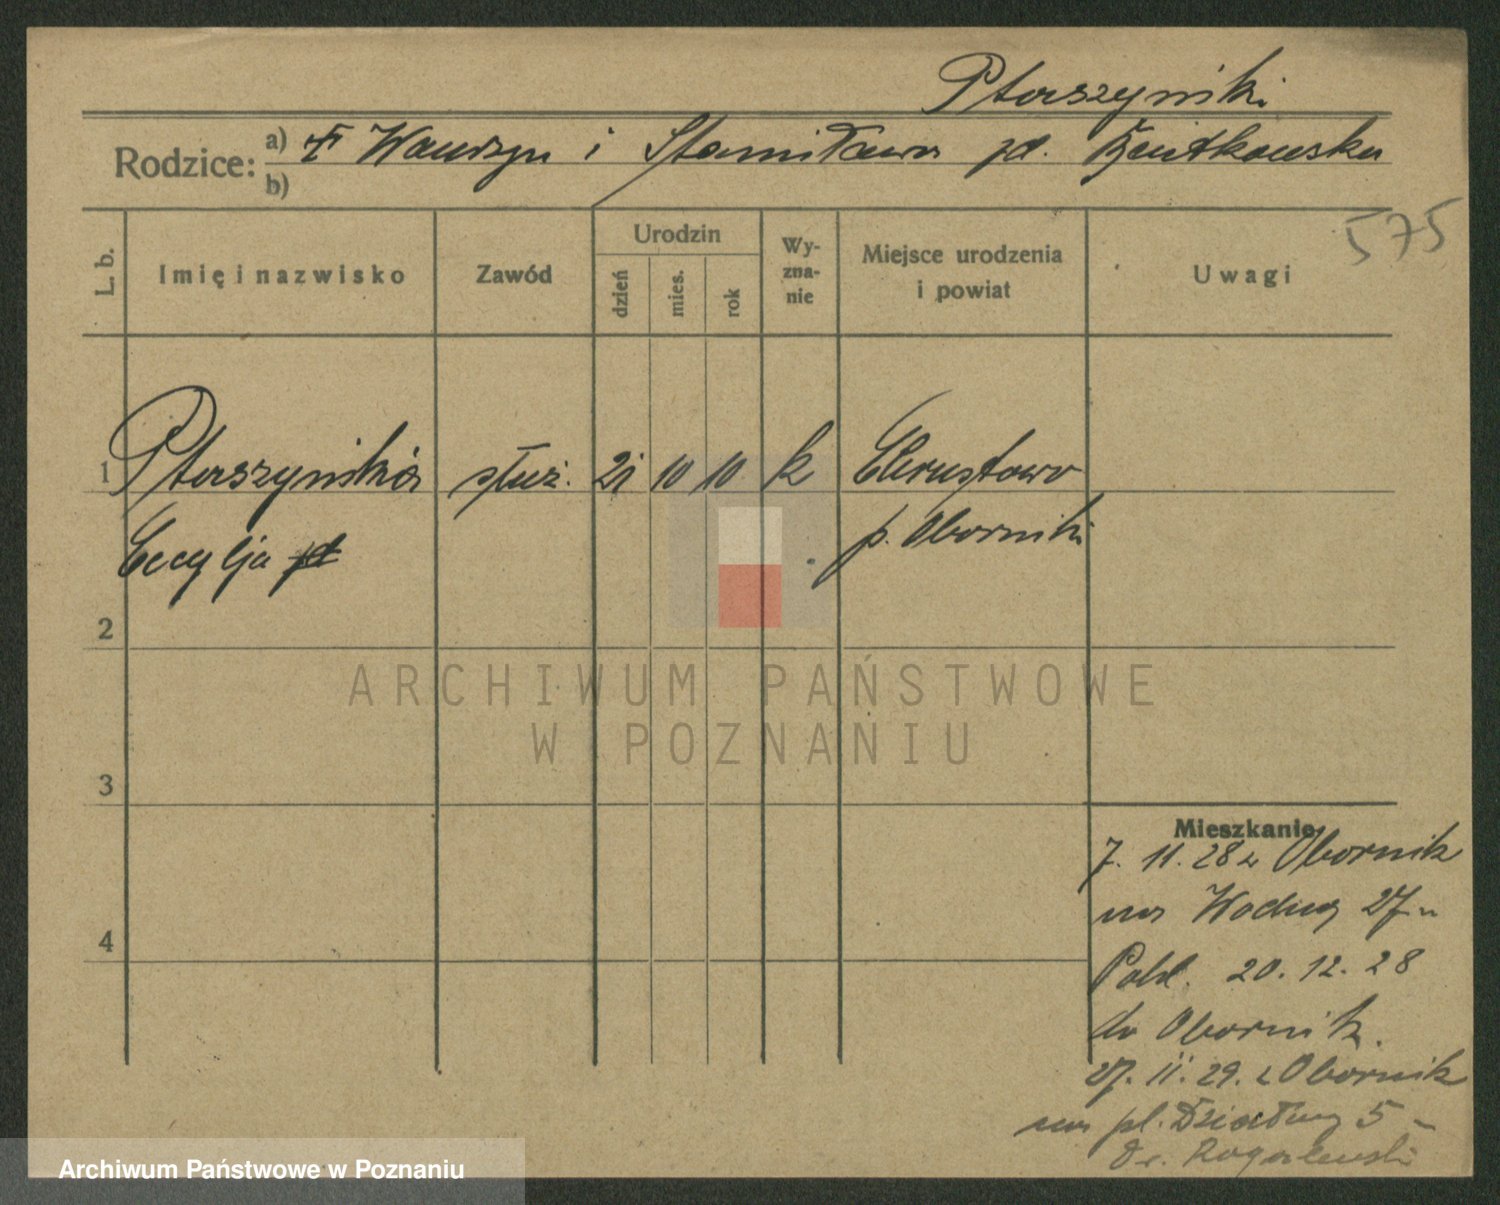 Ptaszyński
Rodzice: a) † Wawrzyn i Stanisława zd. Bentkowska
b)
575
L. b. Imię i nazwisko Zawód Urodzin dzień mies. rok Wyznanie Miejsce urodzenia i powiat Uwagi
1 Ptaszyńska służ. 21 10 10 k Chrustowo
Cecylja p. Oborniki
2
3
4
Mieszkanie
7. 11. 28 z Obornik
na Wodną 27
20. 12. 28
do Obornik.
27. 11. 29. z Obornik
na pl. Działowy 5
Rogalewski
ARCHIWUM PAŃSTWOWE
W POZNANIU
Archiwum Państwowe w Poznaniu